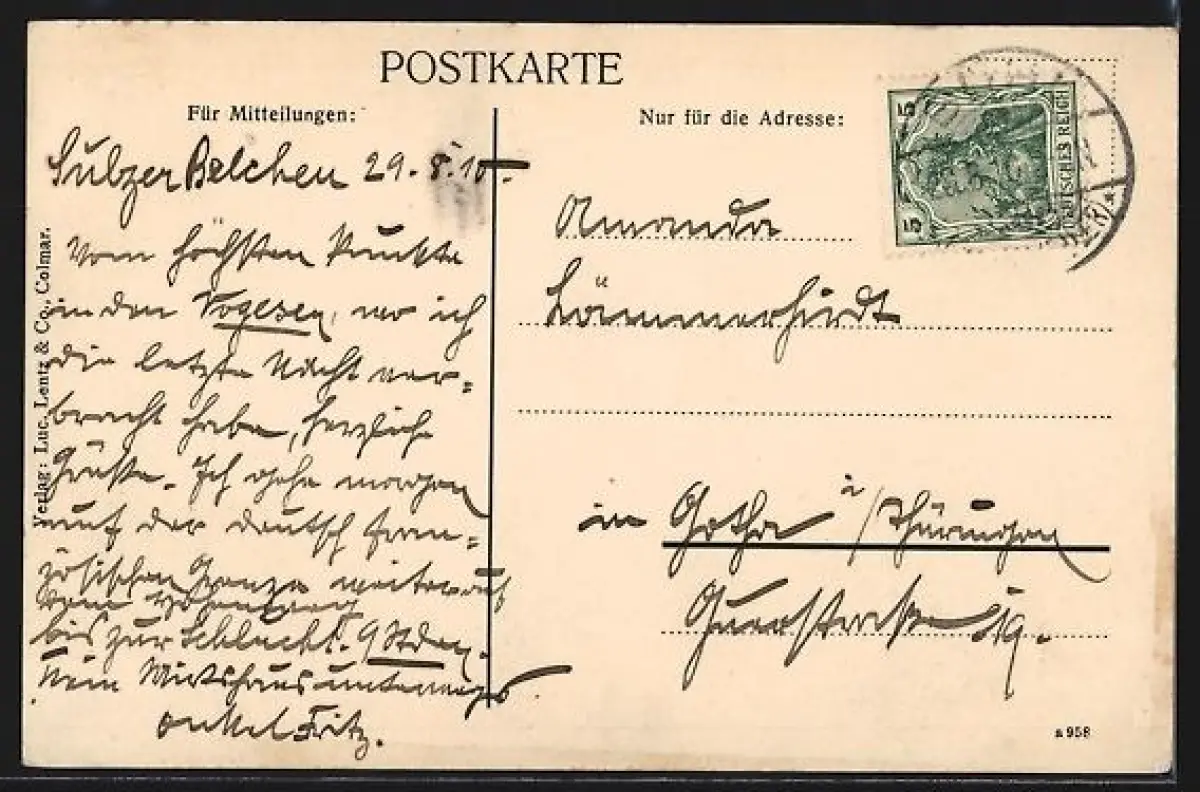 POSTKARTE
Für Mitteilungen:
Sulzer Belchen 29.8.10.
Vom höchsten Punkte
in den Vogesen, wo ich
die letzte Nacht ver=
bracht habe, herzliche
Grüße. Ich gehe morgen
auf der deutsch fran=
zösischen Grenze weiter
vom
bis zur Schlucht. 9 Stden.
Kein Wirtshaus unterwegs
Onkel Fritz.
Verlag: Luc. Lentz & Co., Colmar.
Nur für die Adresse:
5 5
DEUTSCHES REICH
Amanda
Lämmerhirdt
in Gotha i/Thüringen
19.
a 958